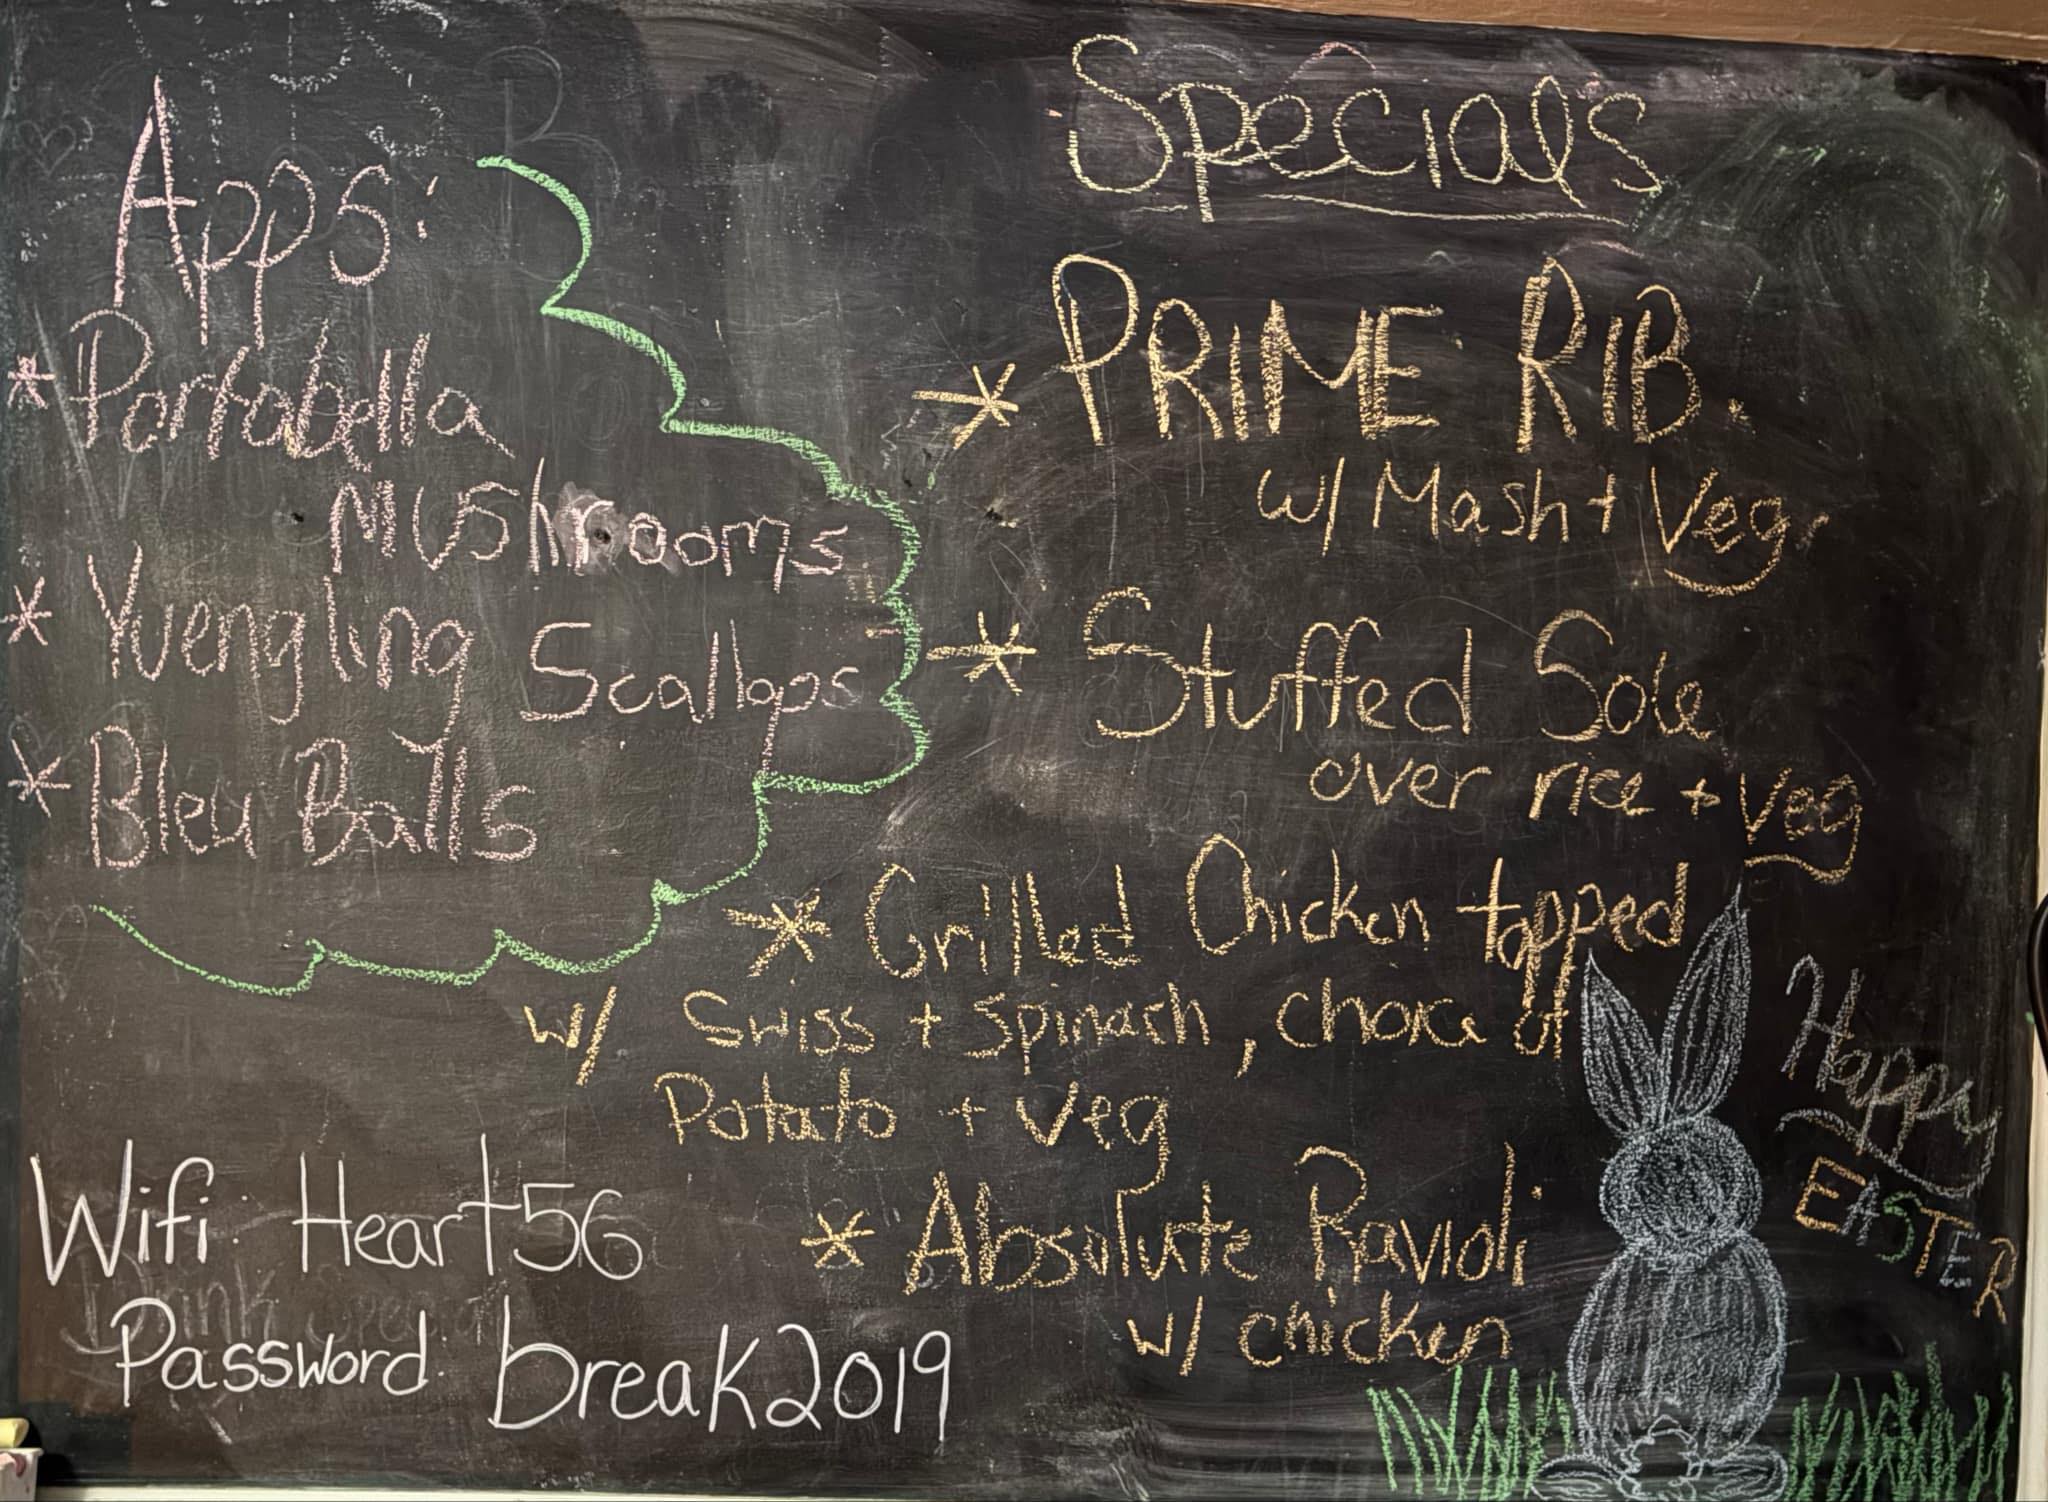 Apps:
* Portabella
Mushrooms
* Yuengling Scallops
* Bleu Balls
Specials
* PRIME RIB
w/ Mash + Veg
* Stuffed Sole
over rice + veg
* Grilled Chicken topped
w/ Swiss + Spinach, choice of
Potato + veg
* Absolute Ravioli
w/ chicken
Happy
EASTER
Wifi: Heart56
Password: break2019